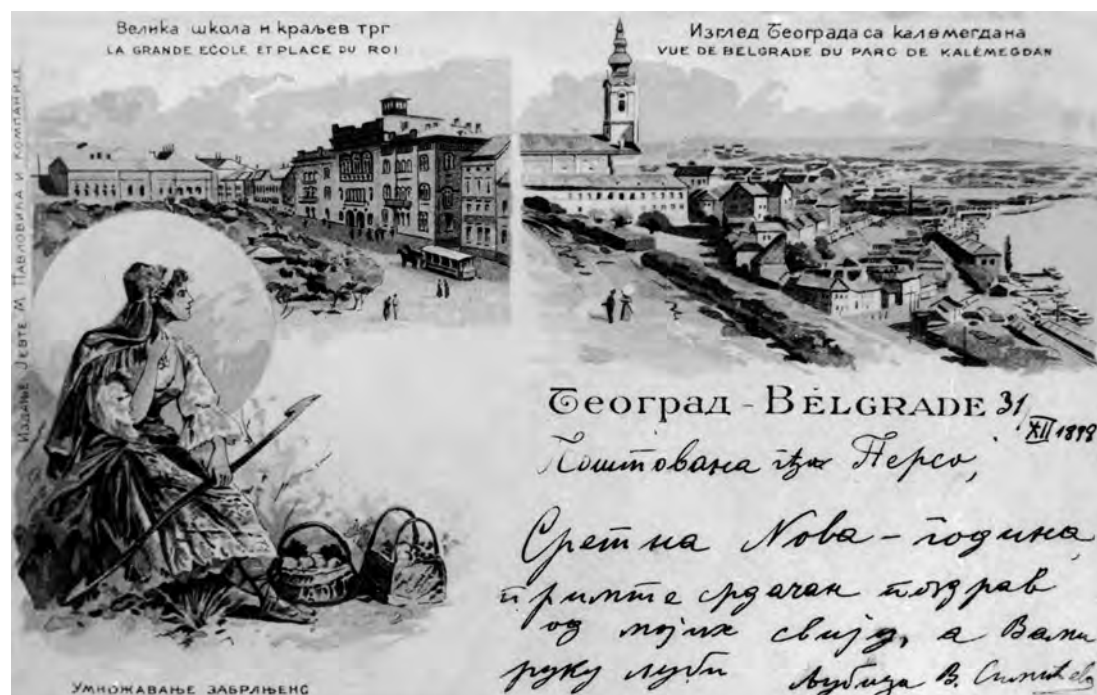 Велика школа и краљев трг
LA GRANDE ECOLE ET PLACE DU ROI
Изглед Београда са калемегдана
VUE DE BELGRADE DU PARC DE KALÉMEGDAN
Издање Јевте М. Павловића и компаније
Београд - BÉLGRADE 31/XII 1898
Поштована Персо,
Сретна Нова - година
примте срдачан поздрав
од мојих свију, а Вами
руку љуби Љубица В.
УМНОЖАВАЊЕ ЗАБРАЊЕНО